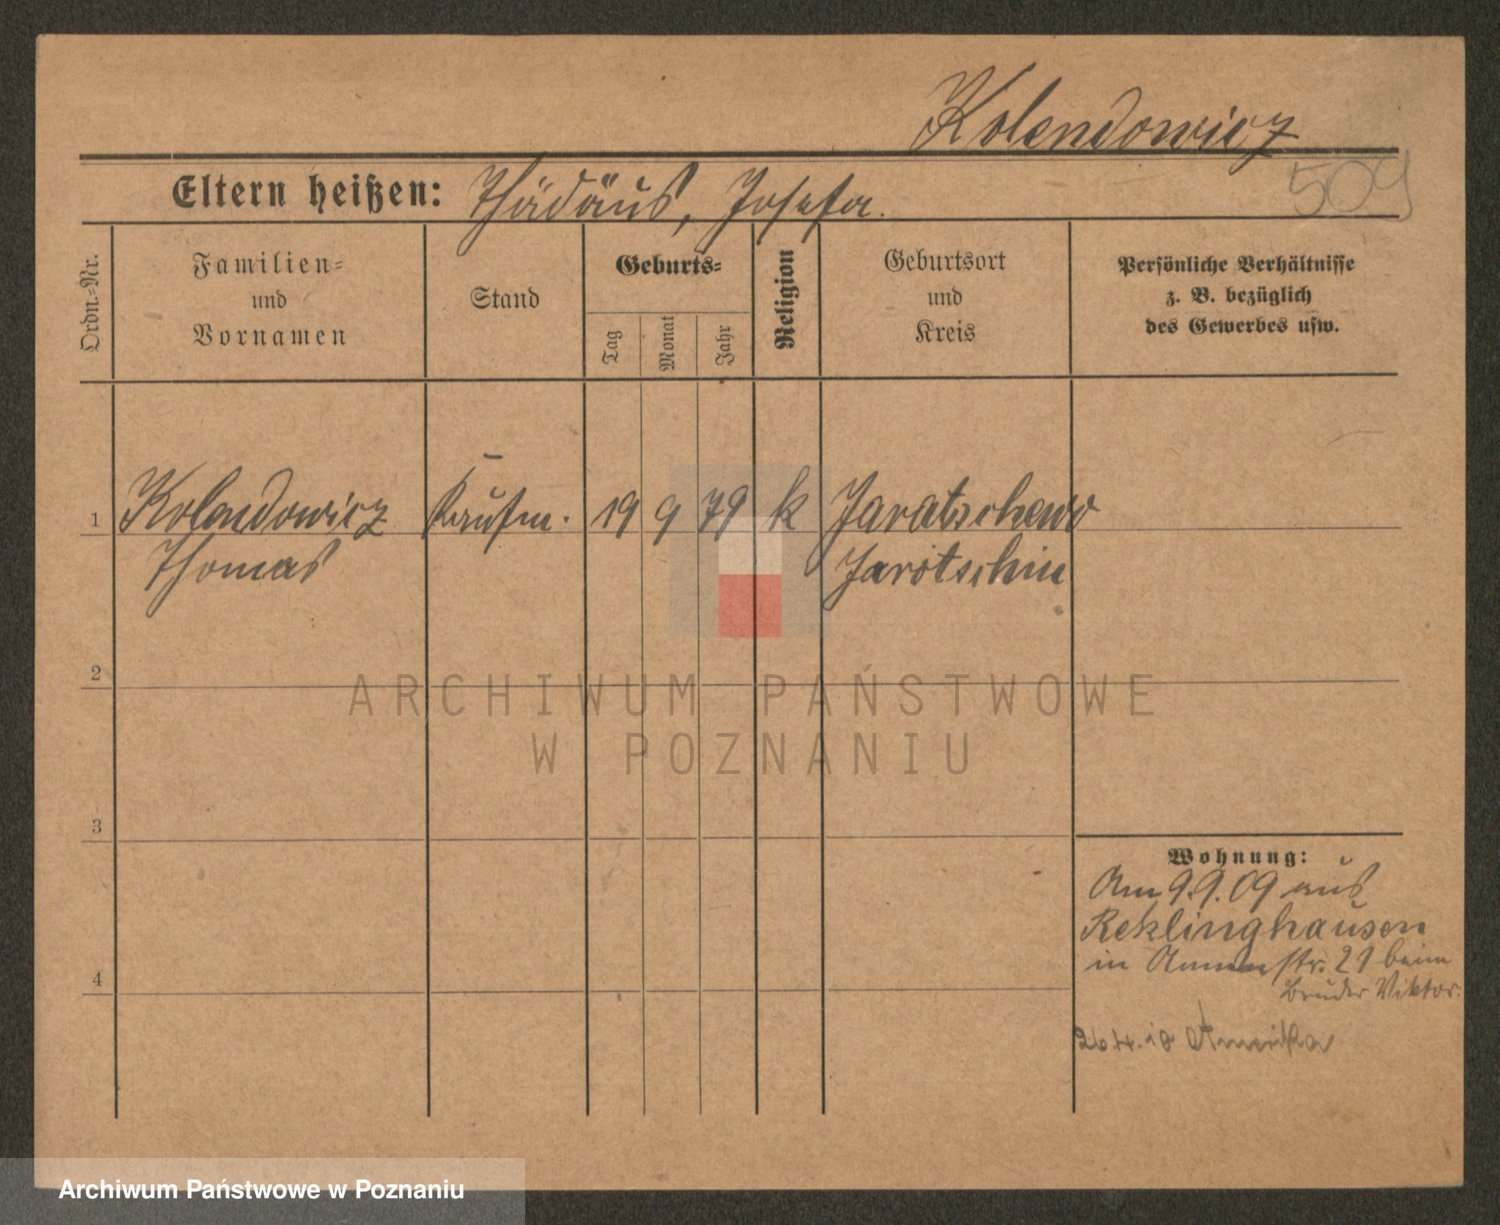 Kolendowicz
509
Eltern heißen: Thädäus, Josefa.
Ordn.-Nr.
Familien-
und
Vornamen
Stand
Geburts-
Tag
Monat
Jahr
Religion
Geburtsort
und
Kreis
Persönliche Verhältnisse
z. B. bezüglich
des Gewerbes usw.
1 Kolendowicz Kaufm. 19 9 79 k Jaratschewo
Thomas Jarotschin
2
ARCHIWUM PAŃSTWOWE
W POZNANIU
3
Wohnung:
Am 9.9.09 aus
Reklinghausen
in str. 21 beim
Bruder Viktor.
4
26.4.10 Amerika
Archiwum Państwowe w Poznaniu